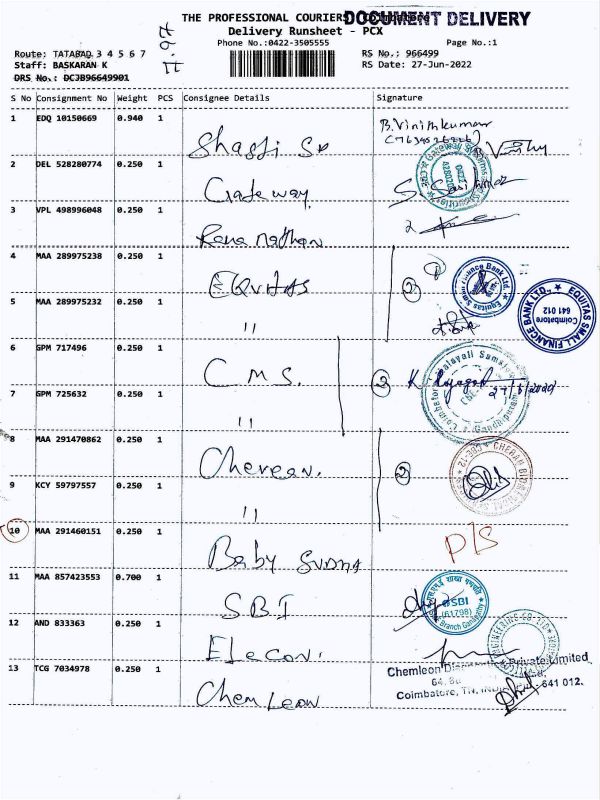 THE PROFESSIONAL COURIERS, Coimbatore
DOCUMENT DELIVERY
Delivery Runsheet - PCX
Phone No.:0422-3505555
Page No.:1
Route: TATABAD 3 4 5 6 7
RS No.: 966499
Staff: BASKARAN K
RS Date: 27-Jun-2022
DRS No.: DCJB96649901
S No Consignment No Weight PCS Consignee Details Signature
1 EDQ 10150669 0.940 1
B. Vinithkumar
2 DEL 528280774 0.250 1 Gateway
3 VPL 498996048 0.250 1
4 MAA 289975238 0.250 1 EQUITAS
Equitas Small Finance Bank Ltd.
EQUITAS SMALL FINANCE BANK LTD.,
Coimbatore
641 012
5 MAA 289975232 0.250 1 "
6 GPM 717496 0.250 1 C.M.S. 2
27/6/2022
7 GPM 725632 0.250 1 "
8 MAA 291470862 0.250 1 2
9 KCY 59797557 0.250 1 "
10 MAA 291460151 0.250 1 Baby Sudha
P/S
11 MAA 857423553 0.700 1 SBI
SBI
(61798)
12 AND 833363 0.250 1 Elecon.
13 TCG 7034978 0.250 1 Chem Leon
Chemleon Private Limited
Coimbatore, TN, 641 012.